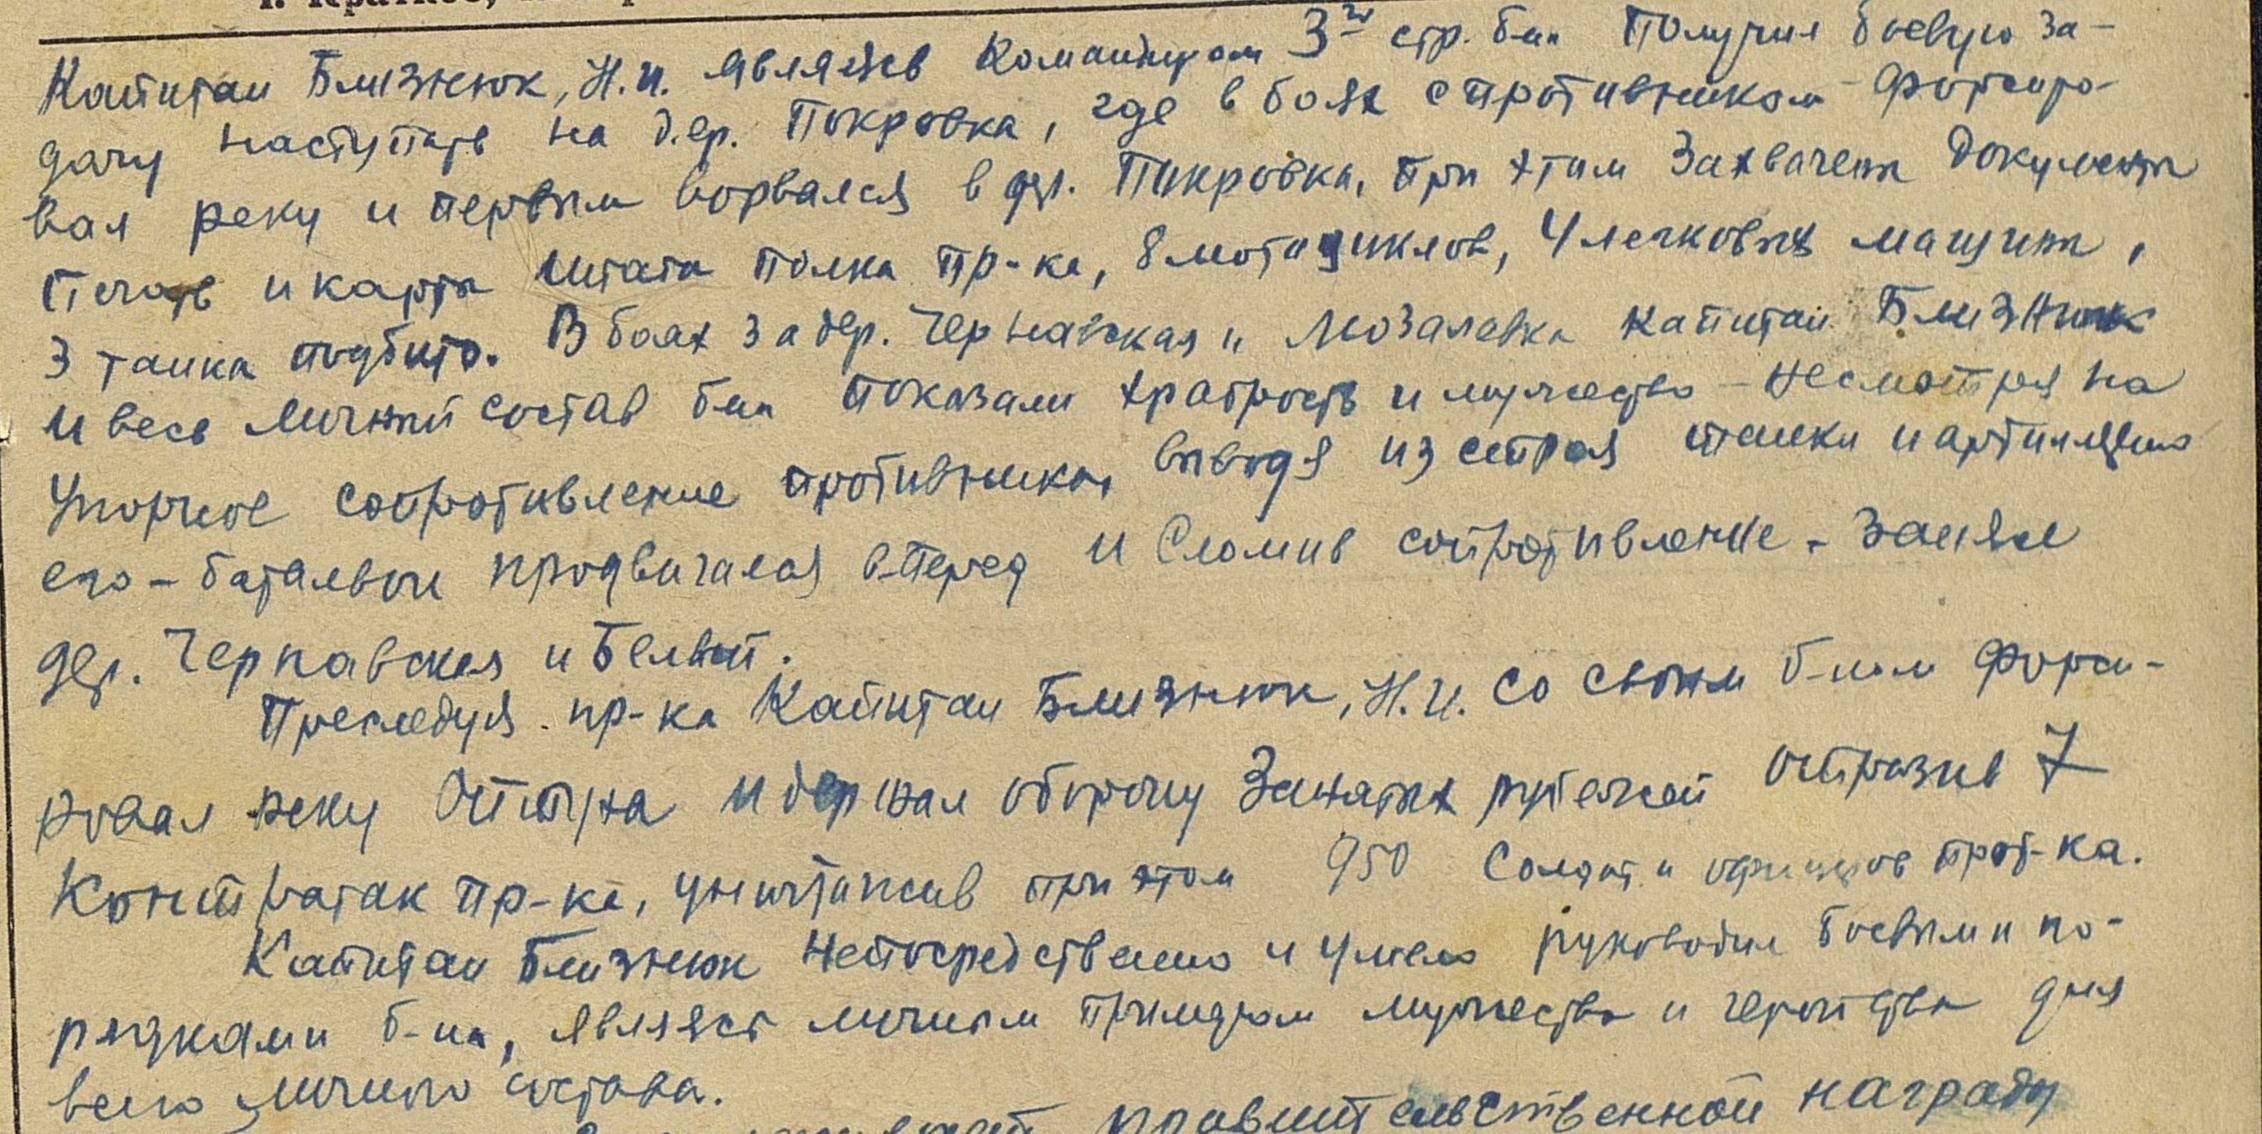 Капитан Близнюк, Н.И. являясь Командиром 3го стр. б-на Получил боевую за-
дачу наступать на дер. Покровка, где в боях с противником форсиро-
вал реку и первым ворвался в дер. Покровка, при этом Захвачены документы
Печать и карты штаба полка пр-ка, 8 мотоциклов, 4 легковых машины,
3 танка подбито. В боях за дер. Чернавская и Мозалевка капитан Близнюк
и весь личный состав б-на показали храбрость и мужество - несмотря на
упорное сопротивление противника, выводя из строя танки и артиллерию
его - батальон продвигался вперед и Сломив сопротивление - занял
дер. Чернавская и Белый.
Преследуя пр-ка Капитан Близнюк, Н.И. со своим б-ном форси-
ровал реку Оптуха и держал оборону Занятых рубежей отразив 7
Контратак пр-ка, уничтожив при этом 950 Солдат и офицеров прот-ка.
Капитан Близнюк Непосредственно и умело руководил боевыми по-
рядками б-на, являясь личным примером мужества и геройства для
всего личного состава.
правительственной награды